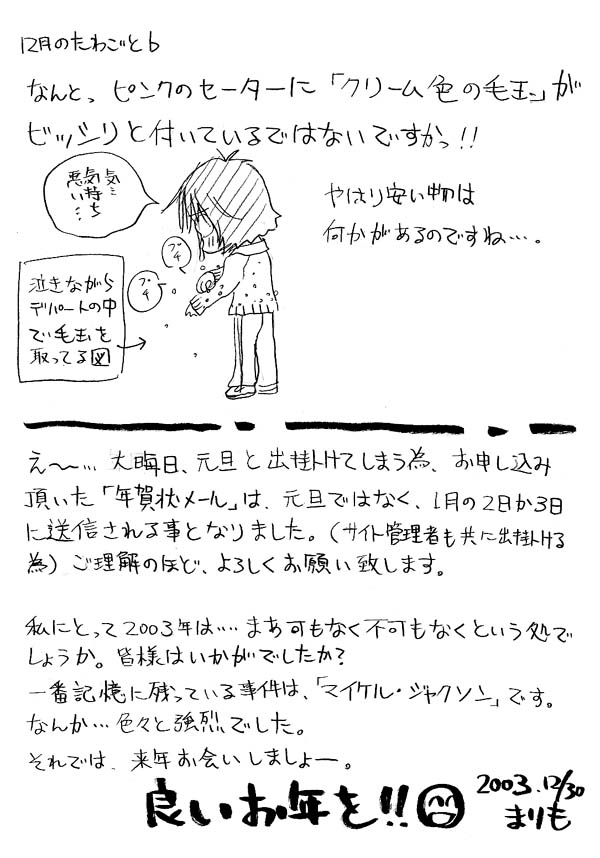 12月のたわごと6
なんとっ ピンクのセーターに「クリーム色の毛玉」が
ビッシリと付いているではないですかっ!!
気持ち
悪い…
やはり安い物は
何かがあるのですね…。
プチ
プチ
泣きながら
デパートの中
で毛玉を
取ってる図
え〜… 大晦日、元旦と出掛けてしまう為、お申し込み
頂いた「年賀状メール」は、元旦ではなく、1月の2日か3日
に送信される事となりました。(サイト管理者も共に出掛ける
為)ご理解のほど、よろしくお願い致します。
私にとって2003年は…まあ可もなく不可もなくという処で
しょうか。皆様はいかがでしたか?
一番記憶に残っている事件は、「マイケル・ジャクソン」です。
なんか…色々と強烈でした。
それでは、来年お会いしましょー。
良いお年を!!
2003.12/30
まりも